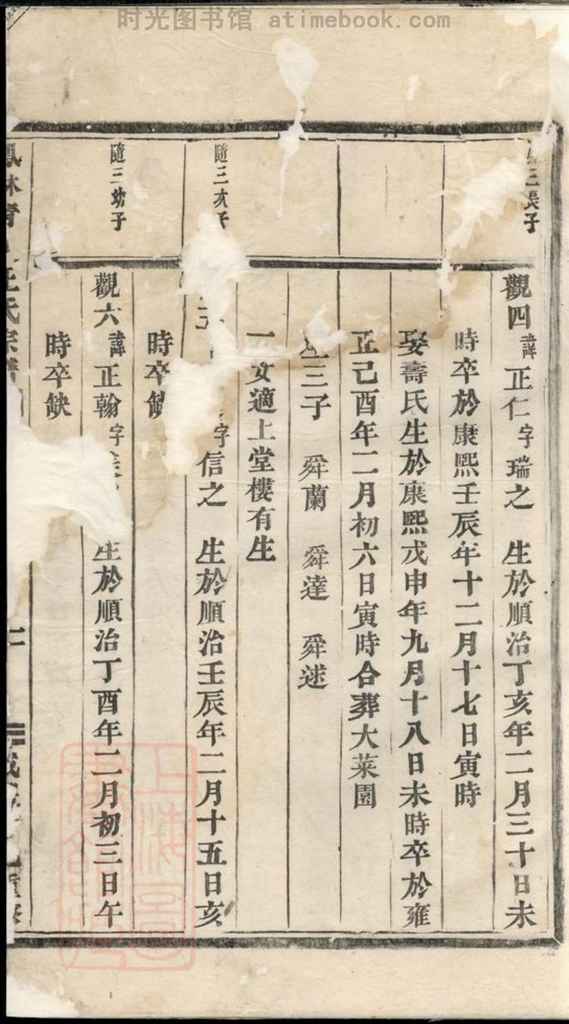 时光图书馆 atimebook.com
三長子
觀四諱正仁字瑞之 生於順治丁亥年二月三十日未
時卒於康熙壬辰年十二月十七日寅時
娶壽氏生於康熙戊申年九月十八日未時卒於雍
正己酉年二月初六日寅時合葬大菜園
三子 舜蘭 舜達 舜述
一女適上堂樓有生
隨三次子
五 字信之 生於順治壬辰年二月十五日亥
時卒缺
隨三幼子
觀六諱正翰字 生於順治丁酉年二月初三日午
時卒缺
林 氏宗譜